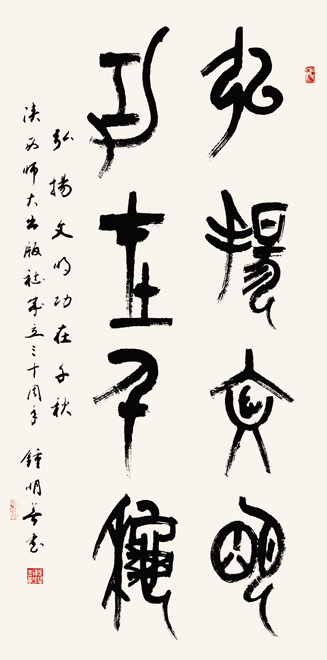 弘揚文明
功在千秋
弘揚文明功在千秋
陕西师大出版社成立三十周年 鍾明善书